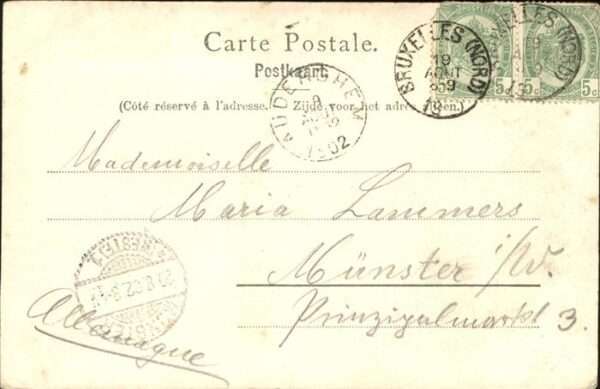 Carte Postale.
Postkaart.
(Côté réservé à l'adresse. — Zijde voor het adres
BRUXELLES (NORD)
19
AOUT
BRUXELLES (NORD)
5c
5c
AUDERGHEM
1902
Mademoiselle
Maria Lammers
Münster i/W.
Prinzipalmarkt 3.
Allemagne
MÜNSTER
20.8.02